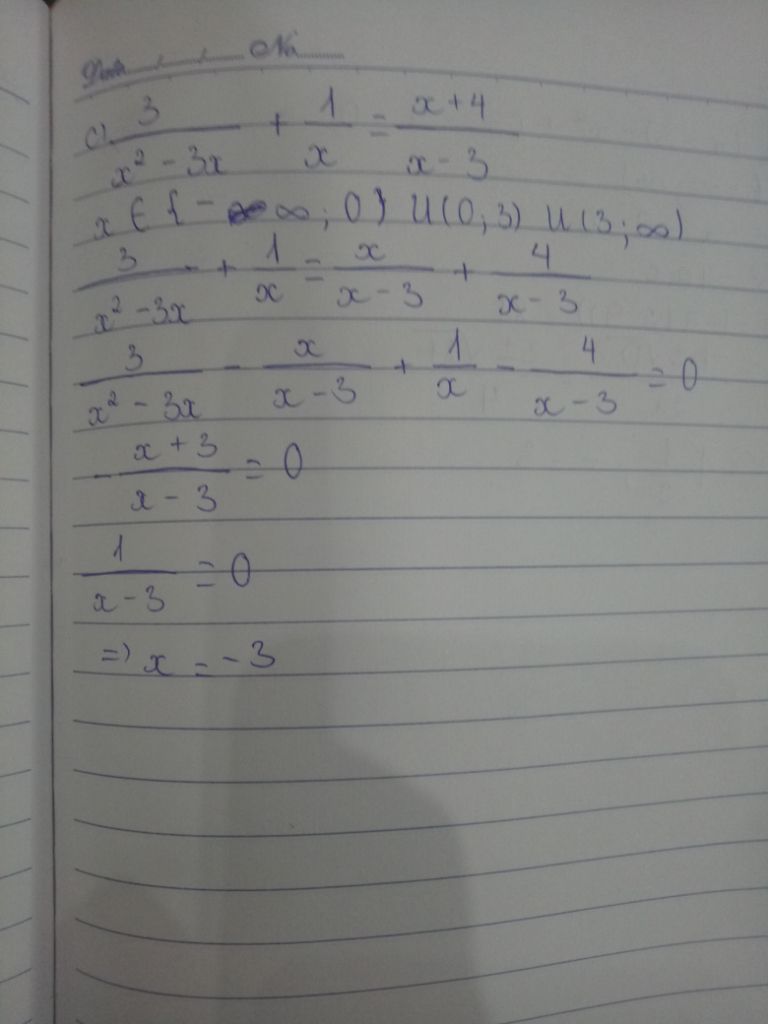 Date / / No
c) 3/(x² - 3x) + 1/x = (x+4)/(x-3)
x ∈ { - ∞ ; 0 ) U (0 ; 3) U (3 ; ∞)
3/(x² - 3x) + 1/x = x/(x-3) + 4/(x-3)
3/(x² - 3x) - x/(x-3) + 1/x - 4/(x-3) = 0
- (x+3)/(x-3) = 0
1/(x-3) = 0
=) x = -3